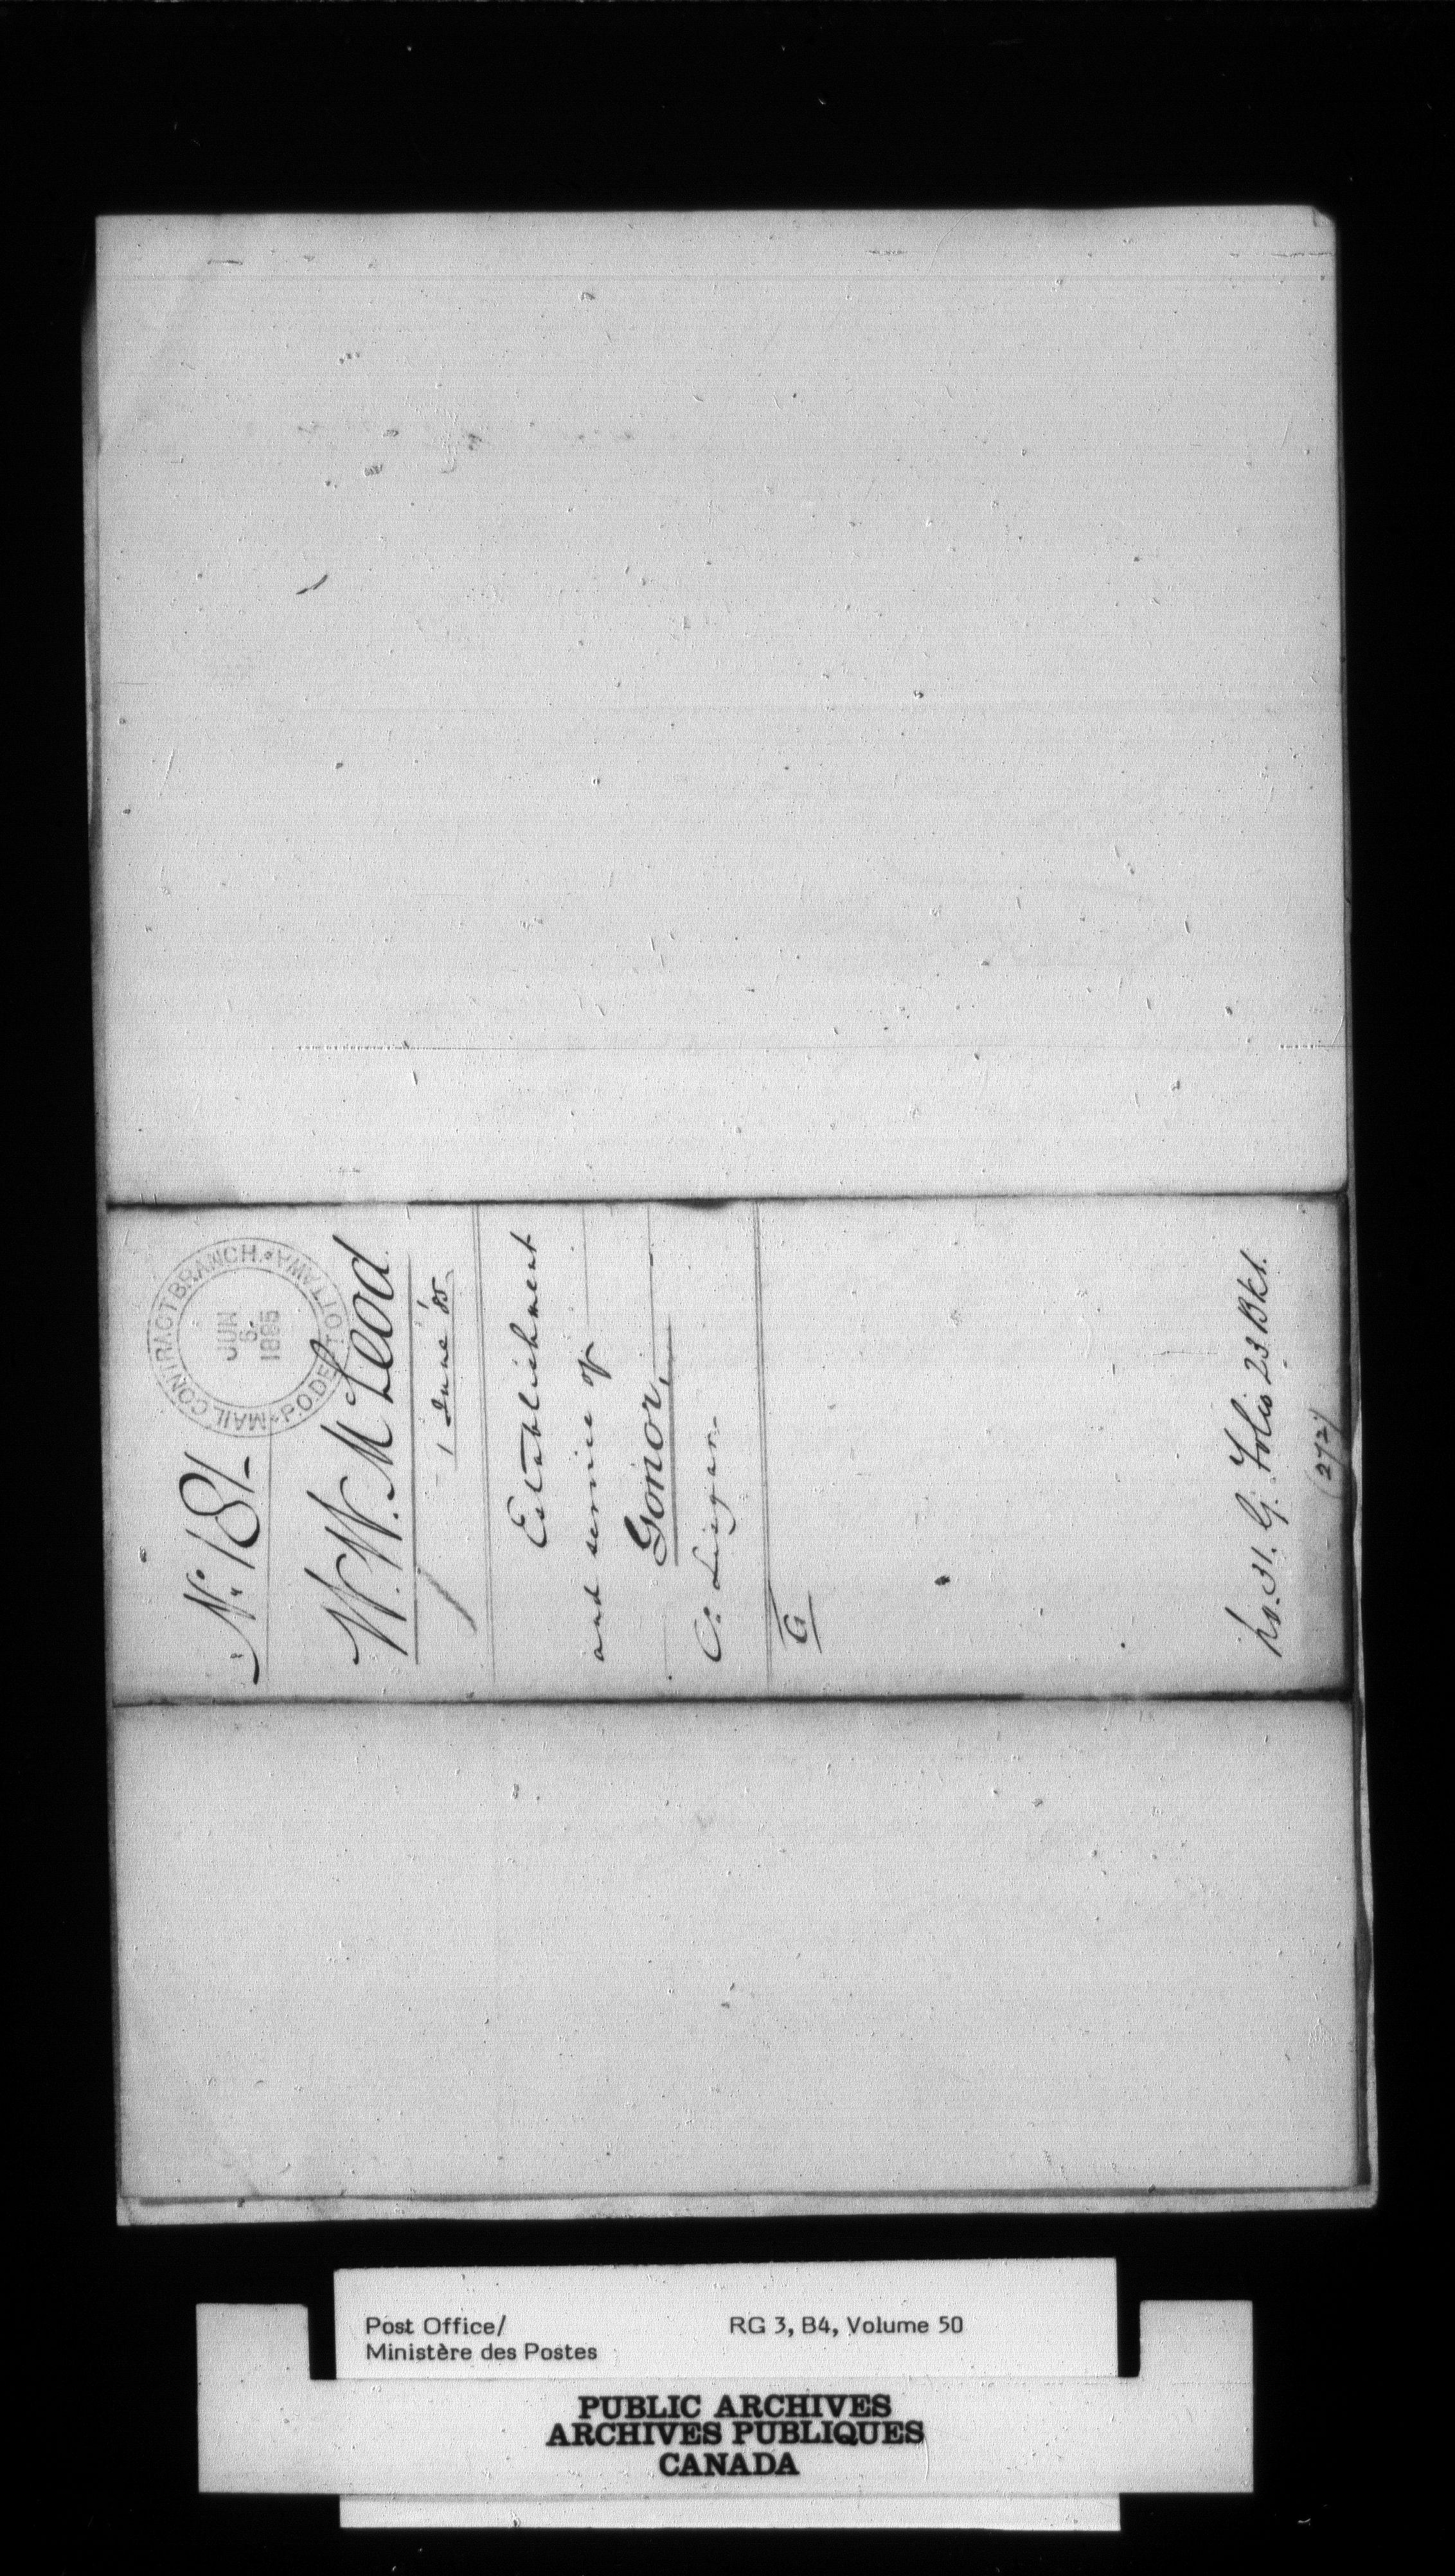 No. 181
MAIL CONTRACT BRANCH. P.O. DEPT OTTAWA
JUN
5
1885
W. W. McLeod
1 June '85
Establishment
and service of
Gonor,
Co. Lisgar
G
31. G. Folio 23 Bkt.
(272)
Post Office/
Ministère des Postes
RG 3, B4, Volume 50
PUBLIC ARCHIVES
ARCHIVES PUBLIQUES
CANADA